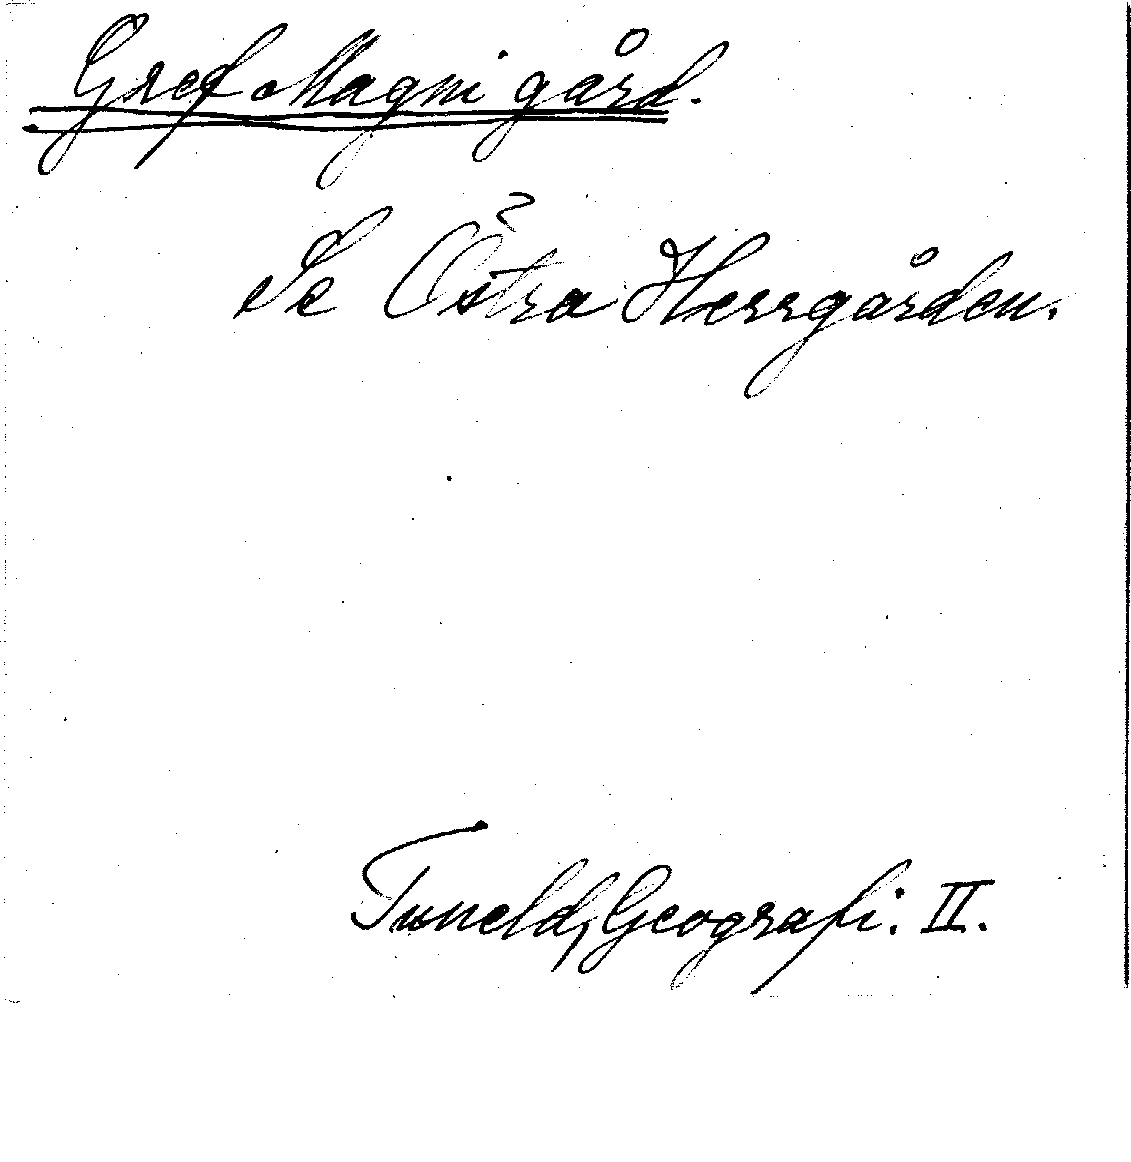 Gref Magni gård.
Se Östra Herrgården.
Tuneld, Geografi. II.